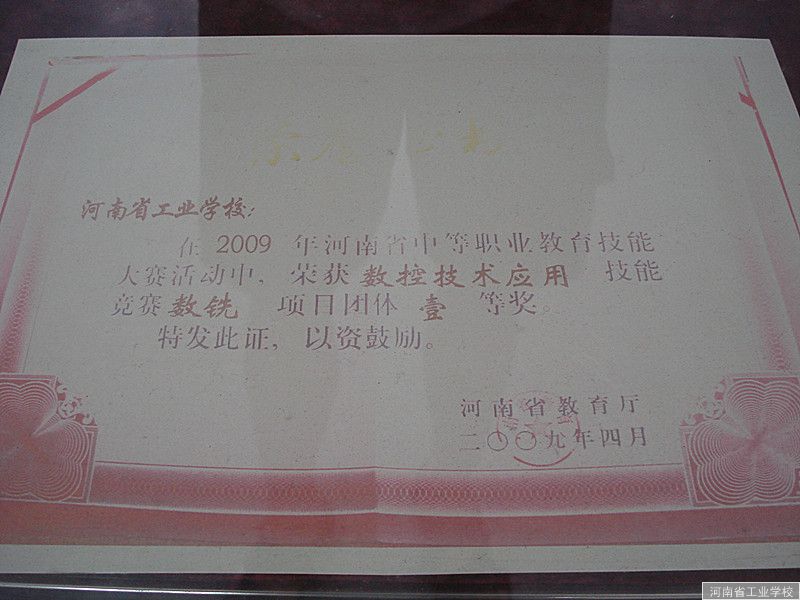 河南省工业学校:
在 2009 年河南省中等职业教育技能
大赛活动中, 荣获 数控技术应用 技能
竞赛 数铣 项目团体 壹 等奖。
特发此证, 以资鼓励。
河南省教育厅
二〇〇九年四月
河南省工业学校